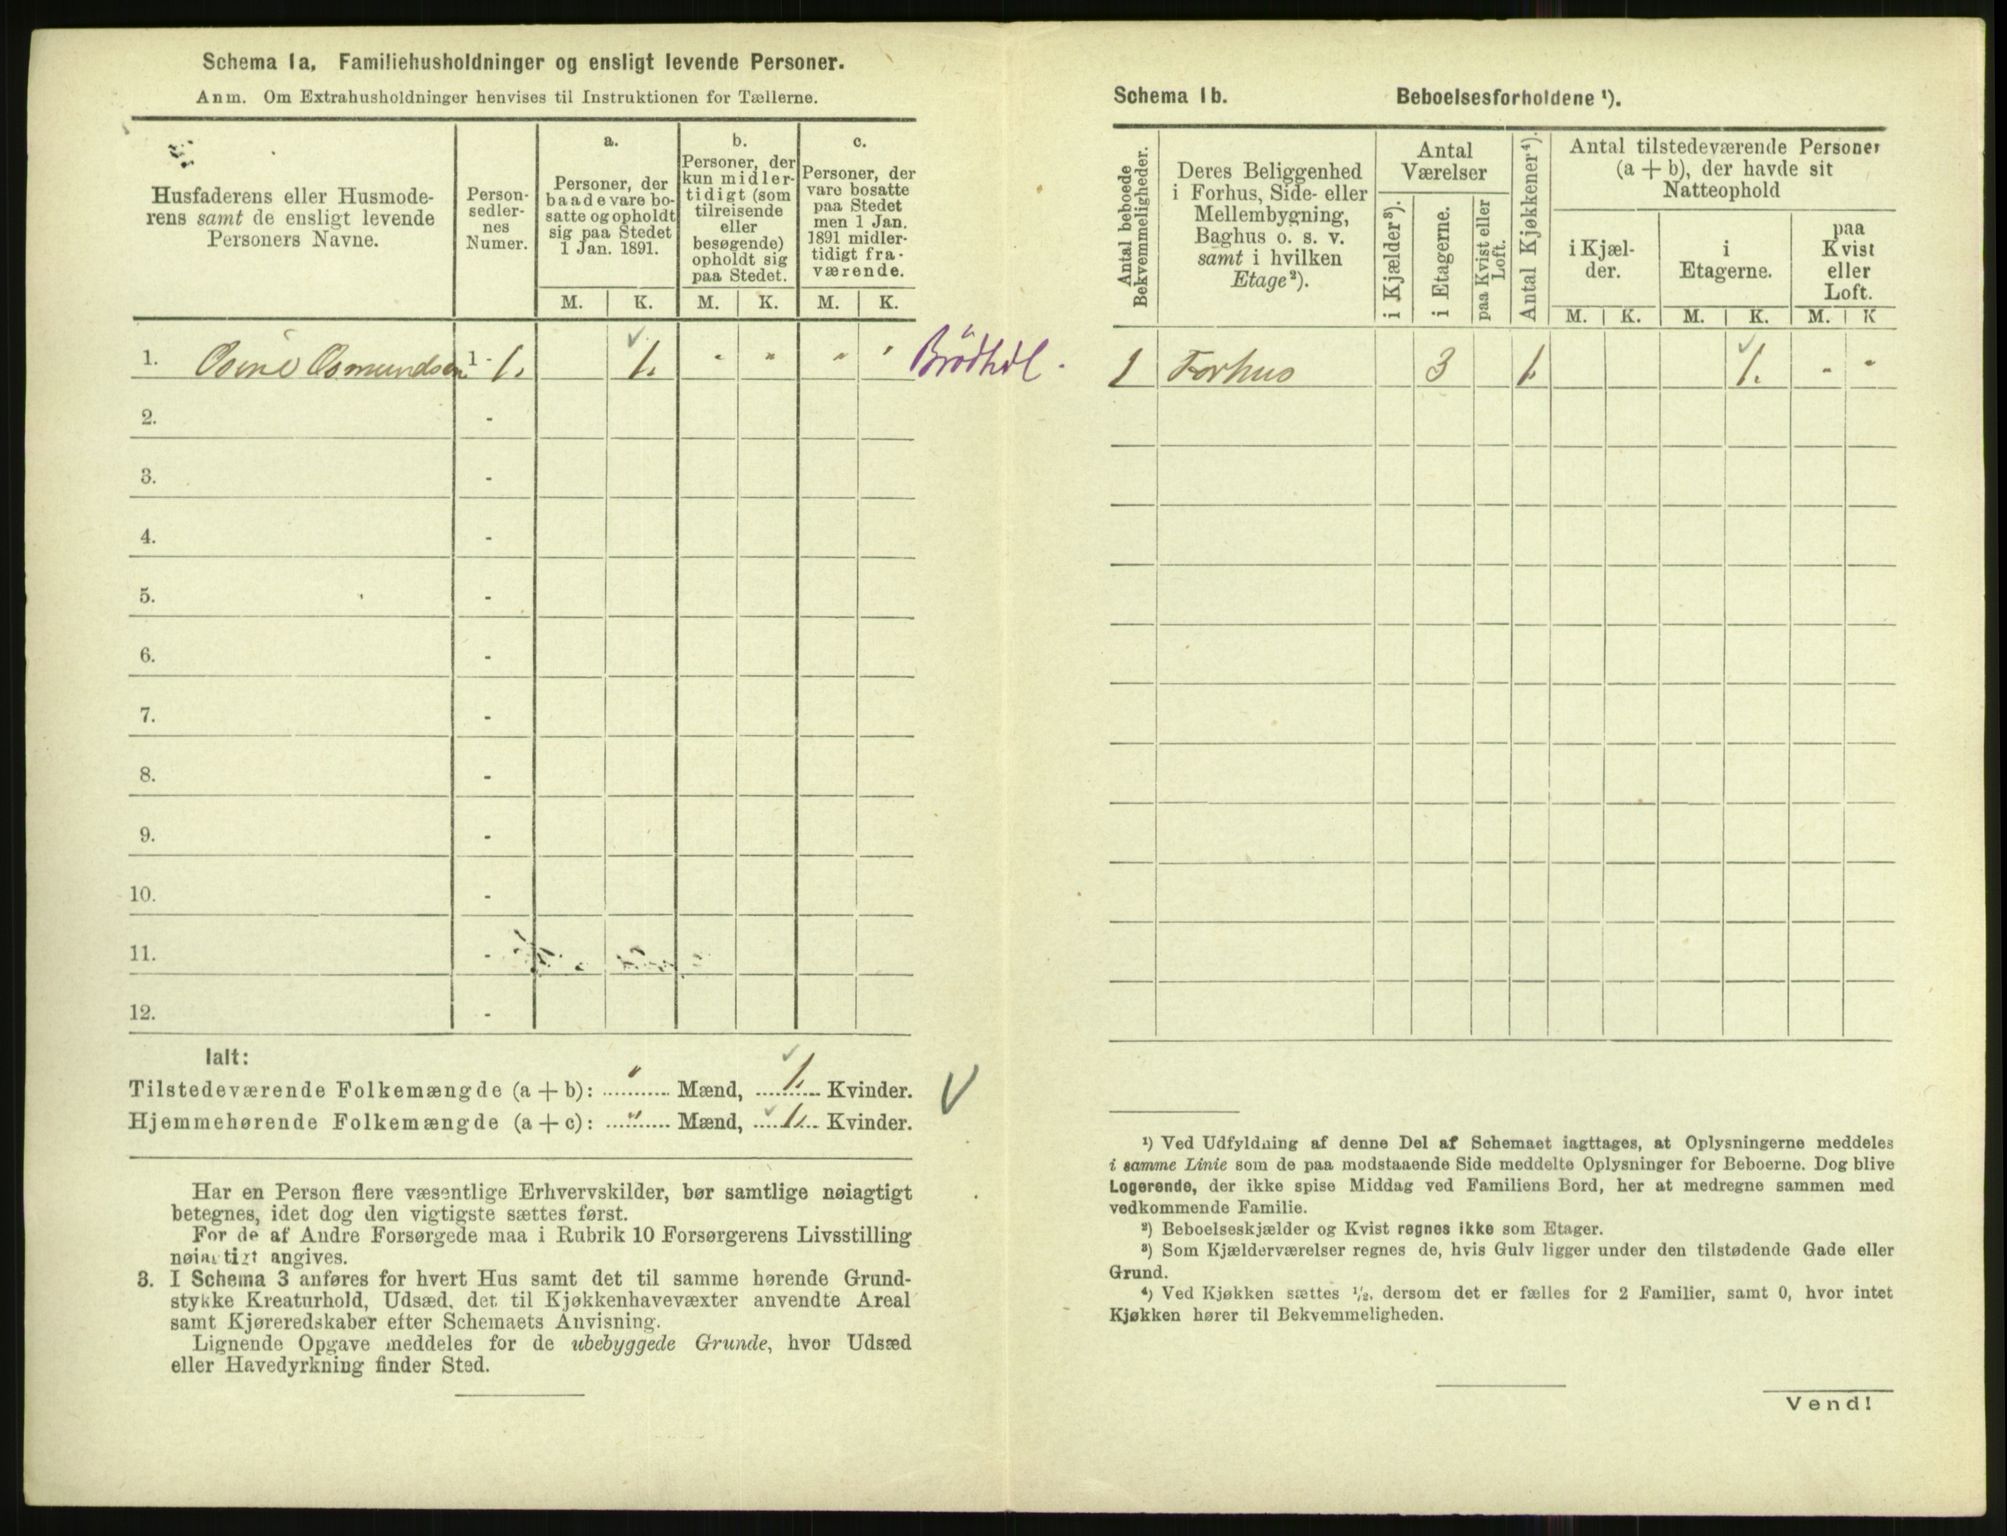 Schema 1a. Familiehusholdninger og ensligt levende Personer.
Anm. Om Extrahusholdninger henvises til Instruktionen for Tællerne.
Husfaderens eller Husmode-
rens samt de ensligt levende
Personers Navne.
Person-
sedler-
nes
Numer.
a.
Personer, der
baade vare bo-
satte og opholdt
sig paa Stedet
1 Jan. 1891.
b.
Personer, der
kun midler-
tidigt (som
tilreisende
eller
besøgende)
opholdt sig
paa Stedet.
c.
Personer, der
vare bosatte
paa Stedet
men 1 Jan.
1891 midler-
tidigt fra-
værende.
M. K. M. K. M. K.
1. Osmundsen 1 - 1. 1. " " " " Brødhdl.
2. -
3. -
4. -
5. -
6. -
7. -
8. -
9. -
10. -
11. -
12. -
Ialt:
Tilstedeværende Folkemængde (a + b): " Mænd, 1. Kvinder.
Hjemmehørende Folkemængde (a + c): " Mænd, 1. Kvinder.
Har en Person flere væsentlige Erhvervskilder, bør samtlige nøiagtigt
betegnes, idet dog den vigtigste sættes først.
For de af Andre Forsørgede maa i Rubrik 10 Forsørgerens Livsstilling
nøiagtigt angives.
3. I Schema 3 anføres for hvert Hus samt det til samme hørende Grund-
stykke Kreaturhold, Udsæd, det til Kjøkkenhavevæxter anvendte Areal
samt Kjøreredskaber efter Schemaets Anvisning.
Lignende Opgave meddeles for de ubebyggede Grunde, hvor Udsæd
eller Havedyrkning finder Sted.
Schema 1b. Beboelsesforholdene ¹).
Antal beboede
Bekvemmeligheder.
Deres Beliggenhed
i Forhus, Side- eller
Mellembygning,
Baghus o. s. v.
samt i hvilken
Etage²).
Antal
Værelser
i Kjælder³).
i Etagerne.
paa Kvist eller
Loft.
Antal Kjøkkener⁴).
Antal tilstedeværende Personer
(a + b), der havde sit
Natteophold
i Kjæl-
der.
i
Etagerne.
paa
Kvist
eller
Loft.
M. K. M. K. M. K
1 Forhus 3 1. 1. " "
¹) Ved Udfyldning af denne Del af Schemaet iagttages, at Oplysningerne meddeles
i samme Linie som de paa modstaaende Side meddelte Oplysninger for Beboerne. Dog blive
Logerende, der ikke spise Middag ved Familiens Bord, her at medregne sammen med
vedkommende Familie.
²) Beboelseskjælder og Kvist regnes ikke som Etager.
³) Som Kjælderværelser regnes de, hvis Gulv ligger under den tilstødende Gade eller
Grund.
⁴) Ved Kjøkken sættes ½, dersom det er fælles for 2 Familier, samt 0, hvor intet
Kjøkken hører til Bekvemmeligheden.
Vend!